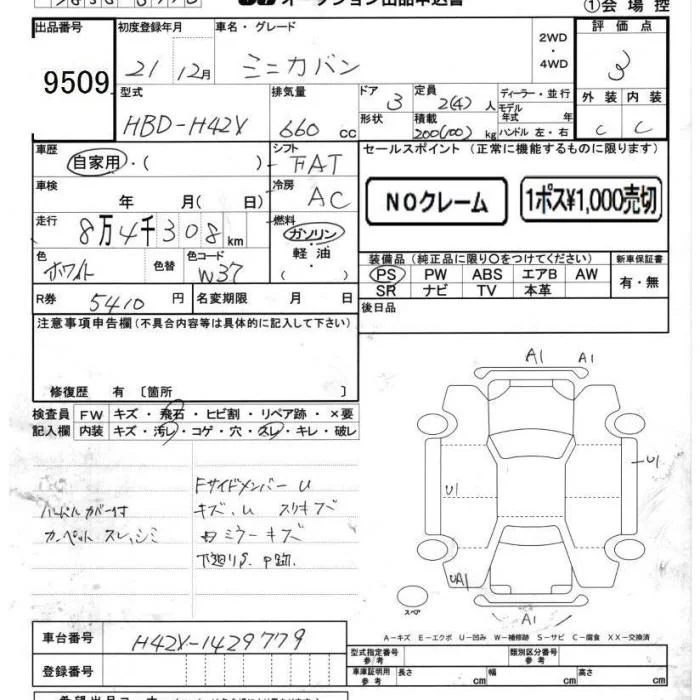 オークション出品申込書 ①会場控
出品番号 初度登録年月 車名・グレード 評価点
9509 21 12月 ミニカバン 2WD・4WD 3
型式 排気量 ドア 定員 ディーラー・並行 外装 内装
HBD-H42V 660 cc 3 2(4)人 モデル年式 年 C C
形状 積載 200(100)kg ハンドル 左・右
車歴 シフト セールスポイント (正常に機能するものに限ります)
自家用・( ) FAT
車検 冷房 NOクレーム 1ポス¥1,000売切
年 月( 日) AC
走行 燃料
8万4千308km ガソリン
色 色替 色コード 軽油・ 装備品(純正品に限り○をつけてください) 新車保証書
ホワイト W37 ( ) PS PW ABS エアB AW 有・無
SR ナビ TV 本革
R券 5410円 名変期限 月 日 後日品
注意事項申告欄(不具合内容等は具体的に記入して下さい)
修復歴 有 〔箇所 〕
検査員 FW キズ・飛石・ヒビ割・リペア跡・×要
記入欄 内装 キズ・汚レ・コゲ・穴・スレ・キレ・破レ
A1 A1
FサイドメンバーU
ハンドルカバー付 キズ、U スリキズ
カーペット スレ、シミ 内ミラーキズ
下廻りS、P跡.
U1 U1
UA1
スペア A1
A-キズ E-エクボ U-凹み W-補修跡 S-サビ C-腐食 XX-交換済
車台番号 H42V-1429779
登録番号
型式指定番号 参考 類別区分番号 参考
車庫証明用 参考 長さ cm 幅 cm 高さ cm